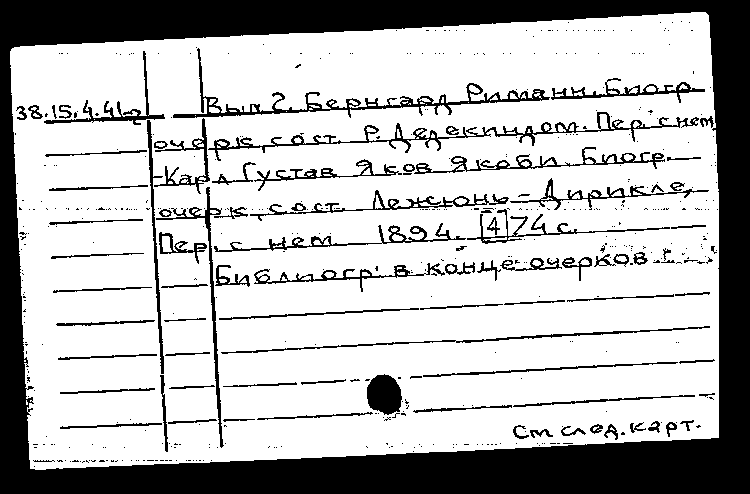 38.15.4.41-2 Вып. 2. Бернгард Риманн. Биогр.
очерк, сост. Р. Дедекиндом. Пер. с нем.
-Карл Густав Яков Якоби. Биогр.
очерк, сост. Лежюнь-Дирикле,
Пер. с нем. 1894. [4] 74 с.
Библиогр. в конце очерков.
См след. карт.